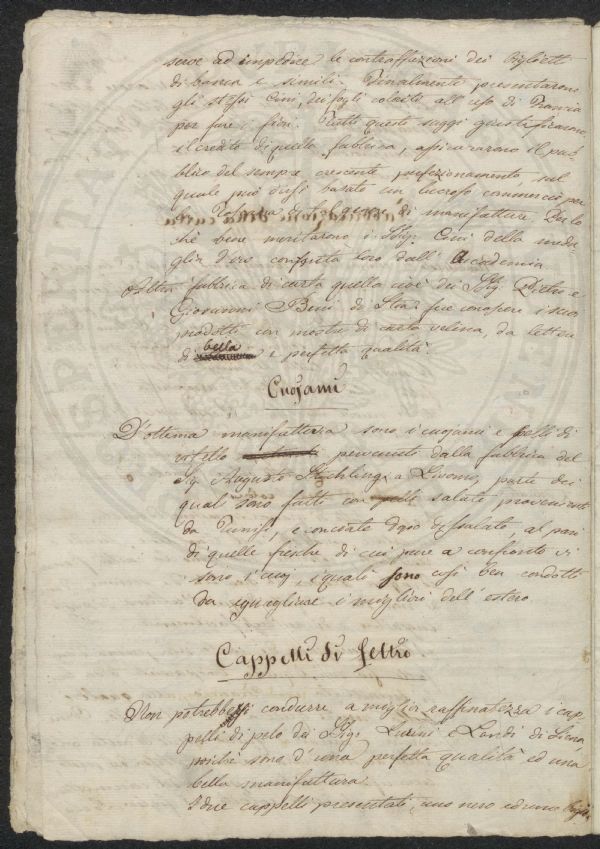 serve ad impedire le contraffazioni dei Biglietti
di banca e simili. Finalmente presentarono
gli stessi Cini, dei fogli coloriti all'uso di Francia
per fare i fiori. Tutti questi saggi giustificarono
il credito di quella fabbrica, assicurarono il pub-
blico del sempre crescente perfezionamento sul
quale può dirsi basato un lucroso commercio per
la Toscana di manifatture. Per lo
chè bene meritarono i Sigg. Cini della meda-
glia d'oro conferita loro dall'Accademia
Altra fabbrica di carta quella cioè dei Sigg. Pietro e
Giovanni Bini di Stia fece conoscere i suoi
prodotti con mostre di carta velina, da lettere
di bella e perfetta qualità.
Cuojami
D'ottima manifattura sono i cuojami e pelli di
vitello pervenuti dalla fabbrica del
Sig. Augusto a Livorno, parte dei
quali sono fatti con pelli salate provenienti
da Tunisi, e conciate dopo al pari
di quelle fresche di cui pure a confronto vi
sono i quali sono così ben condotti
da eguagliare i migliori dell'estero
Cappelli di feltro
Non potrebbesi condurre a miglior raffinatezza i cap-
pelli di pelo dei Sigg. Lusini e Landi di Siena
poichè sono d'una perfetta qualità ed una
bella manifattura.
I due cappelli presentati, uno nero ed uno bigio